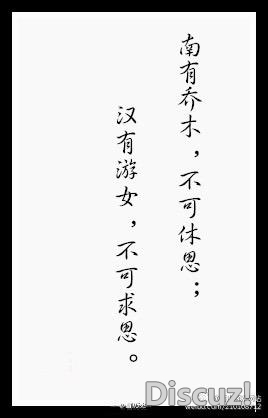 南有乔木，不可休思；
汉有游女，不可求思。
Discuz!